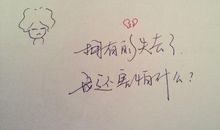 拥有的失去了.
我还害怕什么？